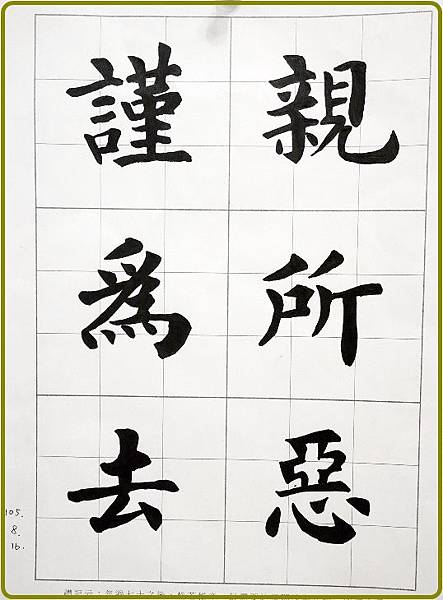 親所惡
謹為去
105.
8.
16.